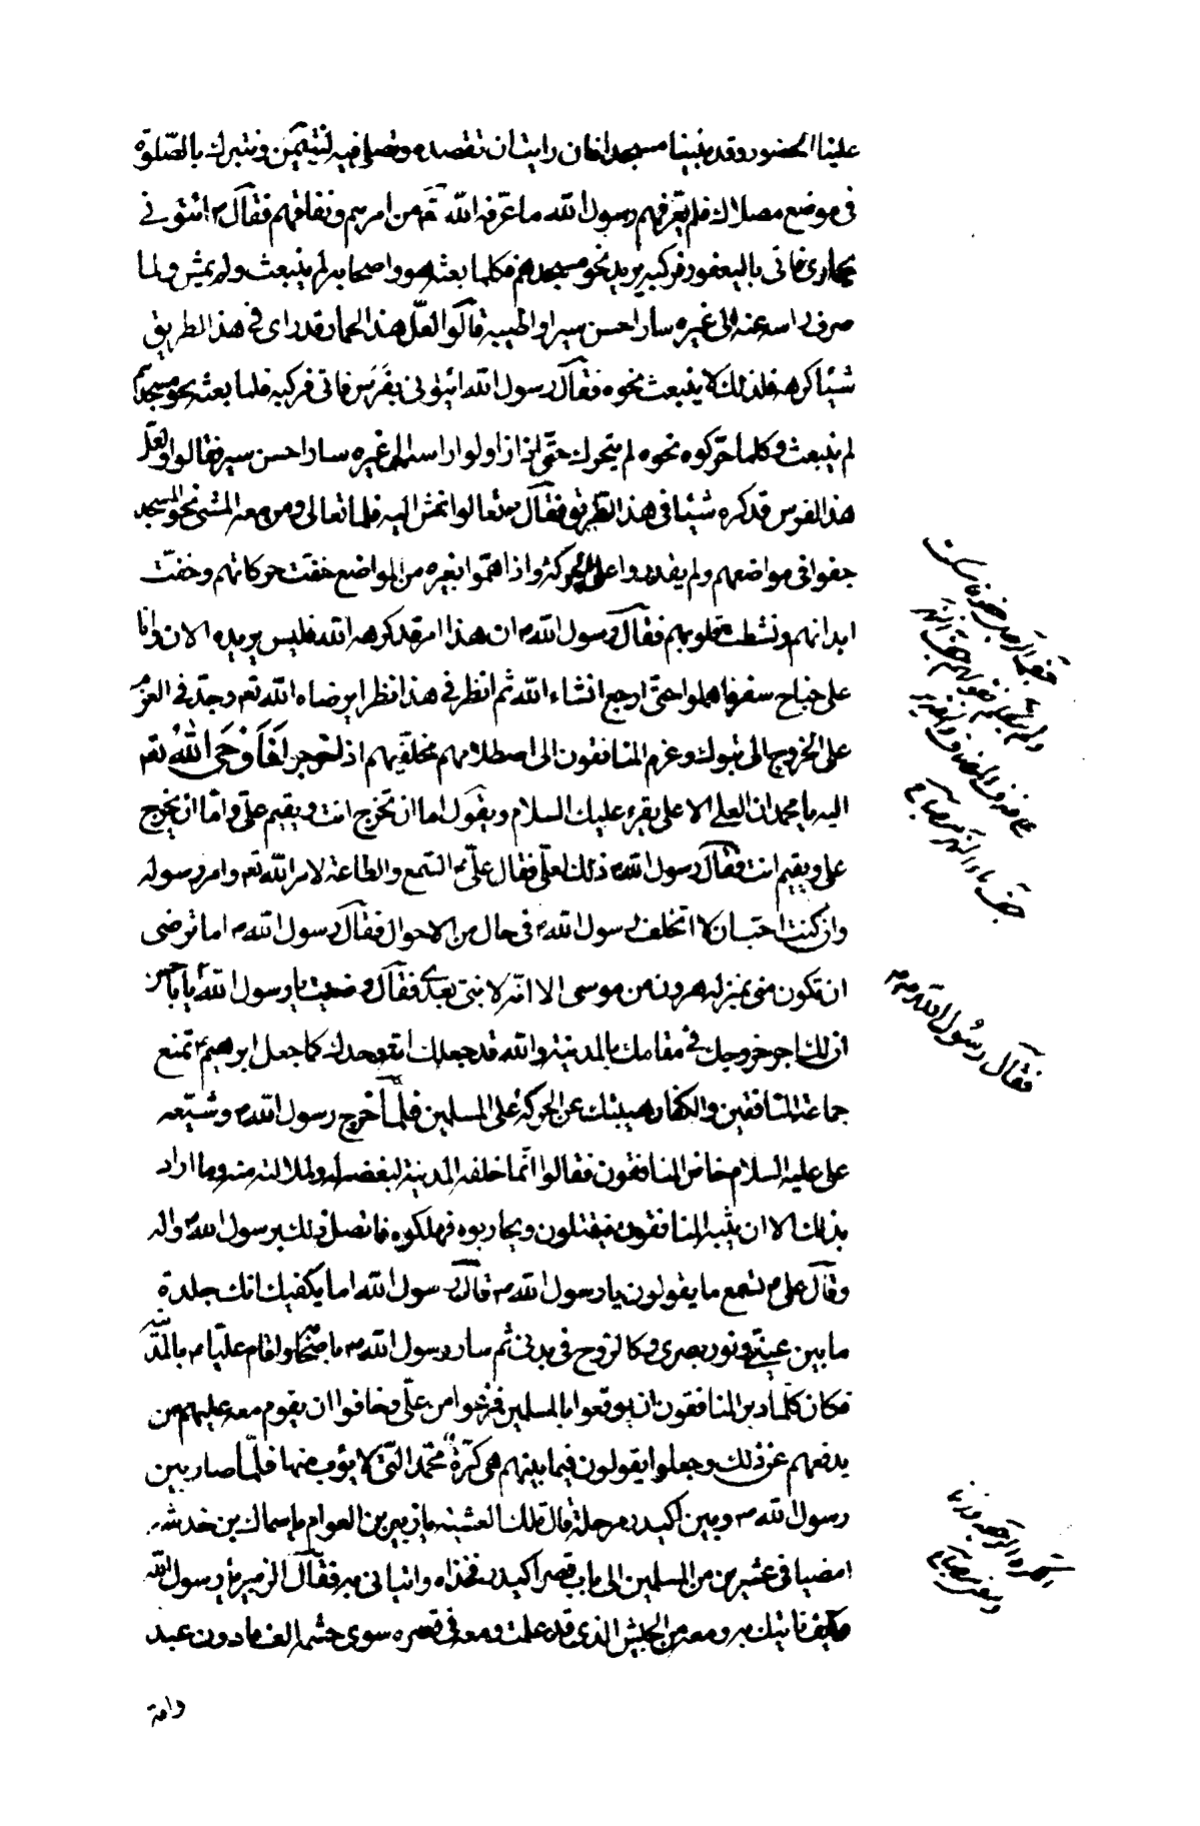 علينا الحضور وقد بنينا مسجدا فان رايت ان تقصده وتصلي فيه لنتيمن ونتبرك بالصلوة
في موضع مصلاك فلم يعرفهم رسول الله ما عرفه الله تع من امرهم ونفاقهم فقال ص ائتوني
بحماري فاتى باليعفور فركبه يريد نحو مسجدهم فكلما بعثه هو واصحابه لم ينبعث ولم يمش ولما
صرف راسه عنه الى غيره سار احسن سير واطيبه قالوا لعل هذا الحمار قد راى في هذا الطريق
شيئا كرهه فلذلك لا ينبعث نحوه فقال رسول الله ائتوني بفرس فاتى فركبه فلما بعثه نحو مسجدهم
لم ينبعث وكلما حركوه نحوه لم يتحرك حتى اذا ولوا راسه الى غيره سار احسن سير فقالوا ولعل
هذا الفرس قد كره شيئا في هذا الطريق فقال ص تعالوا نمش اليه فلما تعالى ومن معه المشي نحو المسجد
جفوا في مواضعهم ولم يقدروا على الحركة واذا هموا بغيره من المواضع خفت حركاتهم وخفت
ابدانهم ونشطت قلوبهم فقال رسول الله ص ان هذا امر قد كرهه الله فليس يريده الان وانا
على جناح سفر فامهلوا حتى ارجع انشاء الله ثم انظر في هذا نظرا يرضاه الله تع وجد في العزم
على الخروج الى تبوك وعزم المنافقون الى اصطلام مخلفيهم اذا خرجوا فاوحى الله تع
اليه يا محمد ان العلي الاعلى يقرء عليك السلام ويقول اما ان تخرج انت ويقيم علي واما ان يخرج
علي ويقيم انت فقال رسول الله ص ذلك لعلي فقال علي ع السمع والطاعة لامر الله تع وامر رسوله
وان كنت احب ان لا اتخلف رسول الله ص في حال من الاحوال فقال رسول الله ص اما ترضى
ان تكون مني بمنزلة هرون من موسى الا انه لا نبي بعدي فقال رضيت يا رسول الله يا ابا حسن
ان لك اجر خروجك في مقامك بالمدينة والله قد جعلك امة وحدك كما جعل ابرهيم ع تمنع
جماعة المنافقين والكفار هيبتك عن الحركة على المسلمين فلما خرج رسول الله ص وشيعه
علي عليه السلام خاض المنافقون فقالوا انما خلفه المدينة لبغضه له ولملالته منه وما اراد
بذلك الا ان يثبه المنافقون فيقتلون ويحاربوه فيهلكوه فاتصل ذلك برسول الله ص واله
وقال علي ع تسمع ما يقولون يا رسول الله ص قال رسول الله اما يكفيك انك جلدة
ما بين عيني ونور بصري وكالروح في بدني ثم سار رسول الله ص باصحابه واقام عليا ع بالمدينة
فكان كلما دبر المنافقون ان يوقعوا بالمسلمين فزعوا من علي وخافوا ان يقوم معه عليهم من
يدفعهم عن ذلك وجعلوا يقولون فيما بينهم هي كرة محمد التي لا يؤب منها فلما صار بين
رسول الله ص وبين اكيدر مرحلة قال تلك العشية يا زبير بن العوام يا سماك بن خدشه
امضيا في عشرين من المسلمين الى باب قصر اكيدر فخذاه واتياني به فقال الزبير يا رسول الله
وكيف ناتيك به ومعه من الجيش الذي قد علمت ومعه في قصره سوى حشمه الف ما دون عبد
فقال رسول الله ص
وامة